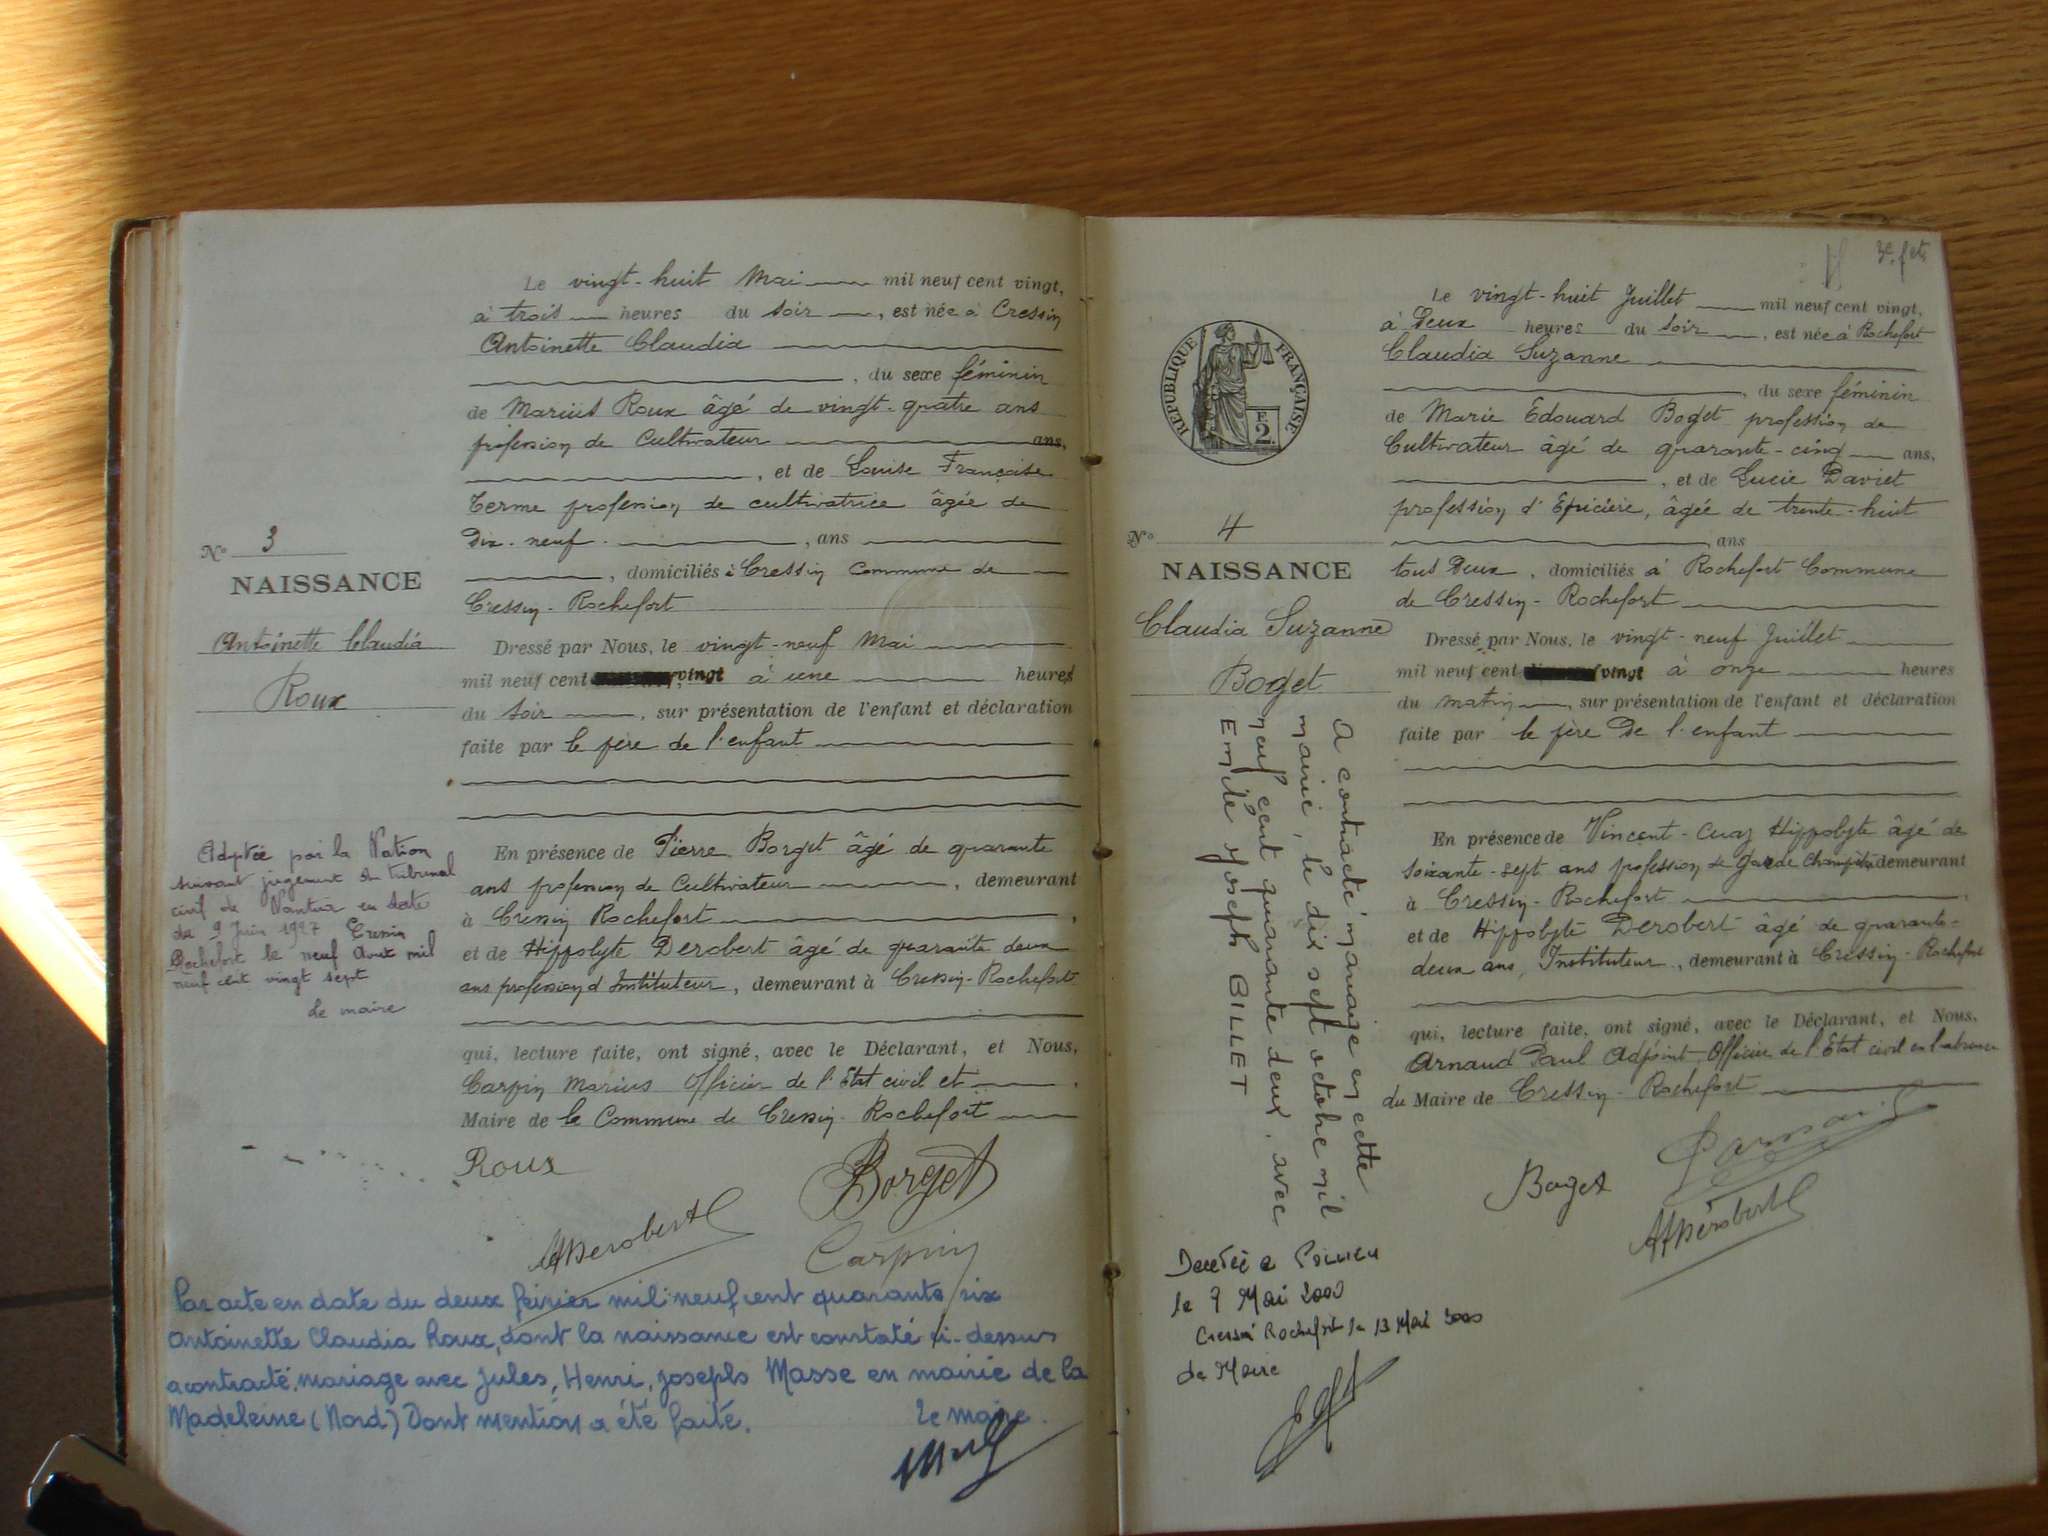 Le vingt-huit Mai mil neuf cent vingt,
à trois heures du soir, est née à Cressin
Antoinette Claudia
, du sexe féminin
de Marius Roux âgé de vingt-quatre ans
profession de Cultivateur ans,
, et de Louise Françoise
Terme profession de cultivatrice âgée de
Dix-neuf , ans
, domiciliés à Cressin Commune de
Cressin-Rochefort
N° 3
NAISSANCE
Antoinette Claudia
Roux
Dressé par Nous, le vingt-neuf Mai
mil neuf cent vingt à une heures
du soir, sur présentation de l'enfant et déclaration
faite par le père de l'enfant
En présence de Pierre Borget âgé de quarante
ans profession de Cultivateur, demeurant
à Cressin Rochefort,
et de Hippolyte Derobert âgé de quarante deux
ans profession d'Instituteur, demeurant à Cressin-Rochefort
qui, lecture faite, ont signé, avec le Déclarant, et Nous,
Carpin Marius Officier de l'Etat civil et
Maire de la Commune de Cressin-Rochefort
Roux
Borget
Derobert
Carpin
Adoptée par la Nation
suivant jugement du tribunal
civil de Nantua en date
du 9 Juin 1927 Cressin
Rochefort le neuf Aout mil
neuf cent vingt sept
Le maire
Par acte en date du deux février mil neuf cent quarante six
Antoinette Claudia Roux, dont la naissance est constaté ci-dessus
a contracté mariage avec Jules, Henri, Joseph Masse en mairie de la
Madeleine (Nord) Dont mention a été faite. Le maire.
3e. fet
RÉPUBLIQUE FRANÇAISE
E
2
Le vingt-huit Juillet mil neuf cent vingt,
à Deux heures du soir, est née à Rochefort
Claudia Suzanne
, du sexe féminin
de Marie Edouard Boget profession de
Cultivateur âgé de quarante-cinq ans,
, et de Lucie Daviet
profession d'Epicière, âgée de trente-huit
ans
tous Deux, domiciliés à Rochefort Commune
de Cressin-Rochefort
N° 4
NAISSANCE
Claudia Suzanne
Boget
Dressé par Nous, le vingt-neuf Juillet
mil neuf cent vingt à onze heures
du matin, sur présentation de l'enfant et déclaration
faite par le père De l'enfant
En présence de Vincent-Cuaz Hippolyte âgé de
soixante-sept ans profession de garde champêtre demeurant
à Cressin-Rochefort,
et de Hippolyte Derobert âgé de quarante-
deux ans, Instituteur, demeurant à Cressin-Rochefort
qui, lecture faite, ont signé, avec le Déclarant, et Nous,
Arnaud Paul Adjoint Officier de l'Etat civil en l'absence
du Maire de Cressin-Rochefort
Boget
Derobert
A contracté mariage en cette
mairie, le dix sept octobre mil
neuf cent quarante deux, avec
Emile Joseph BILLET
Décédée à
le 9 Mai 2000
Cressin Rochefort le 13 Mai 2000
Le Maire